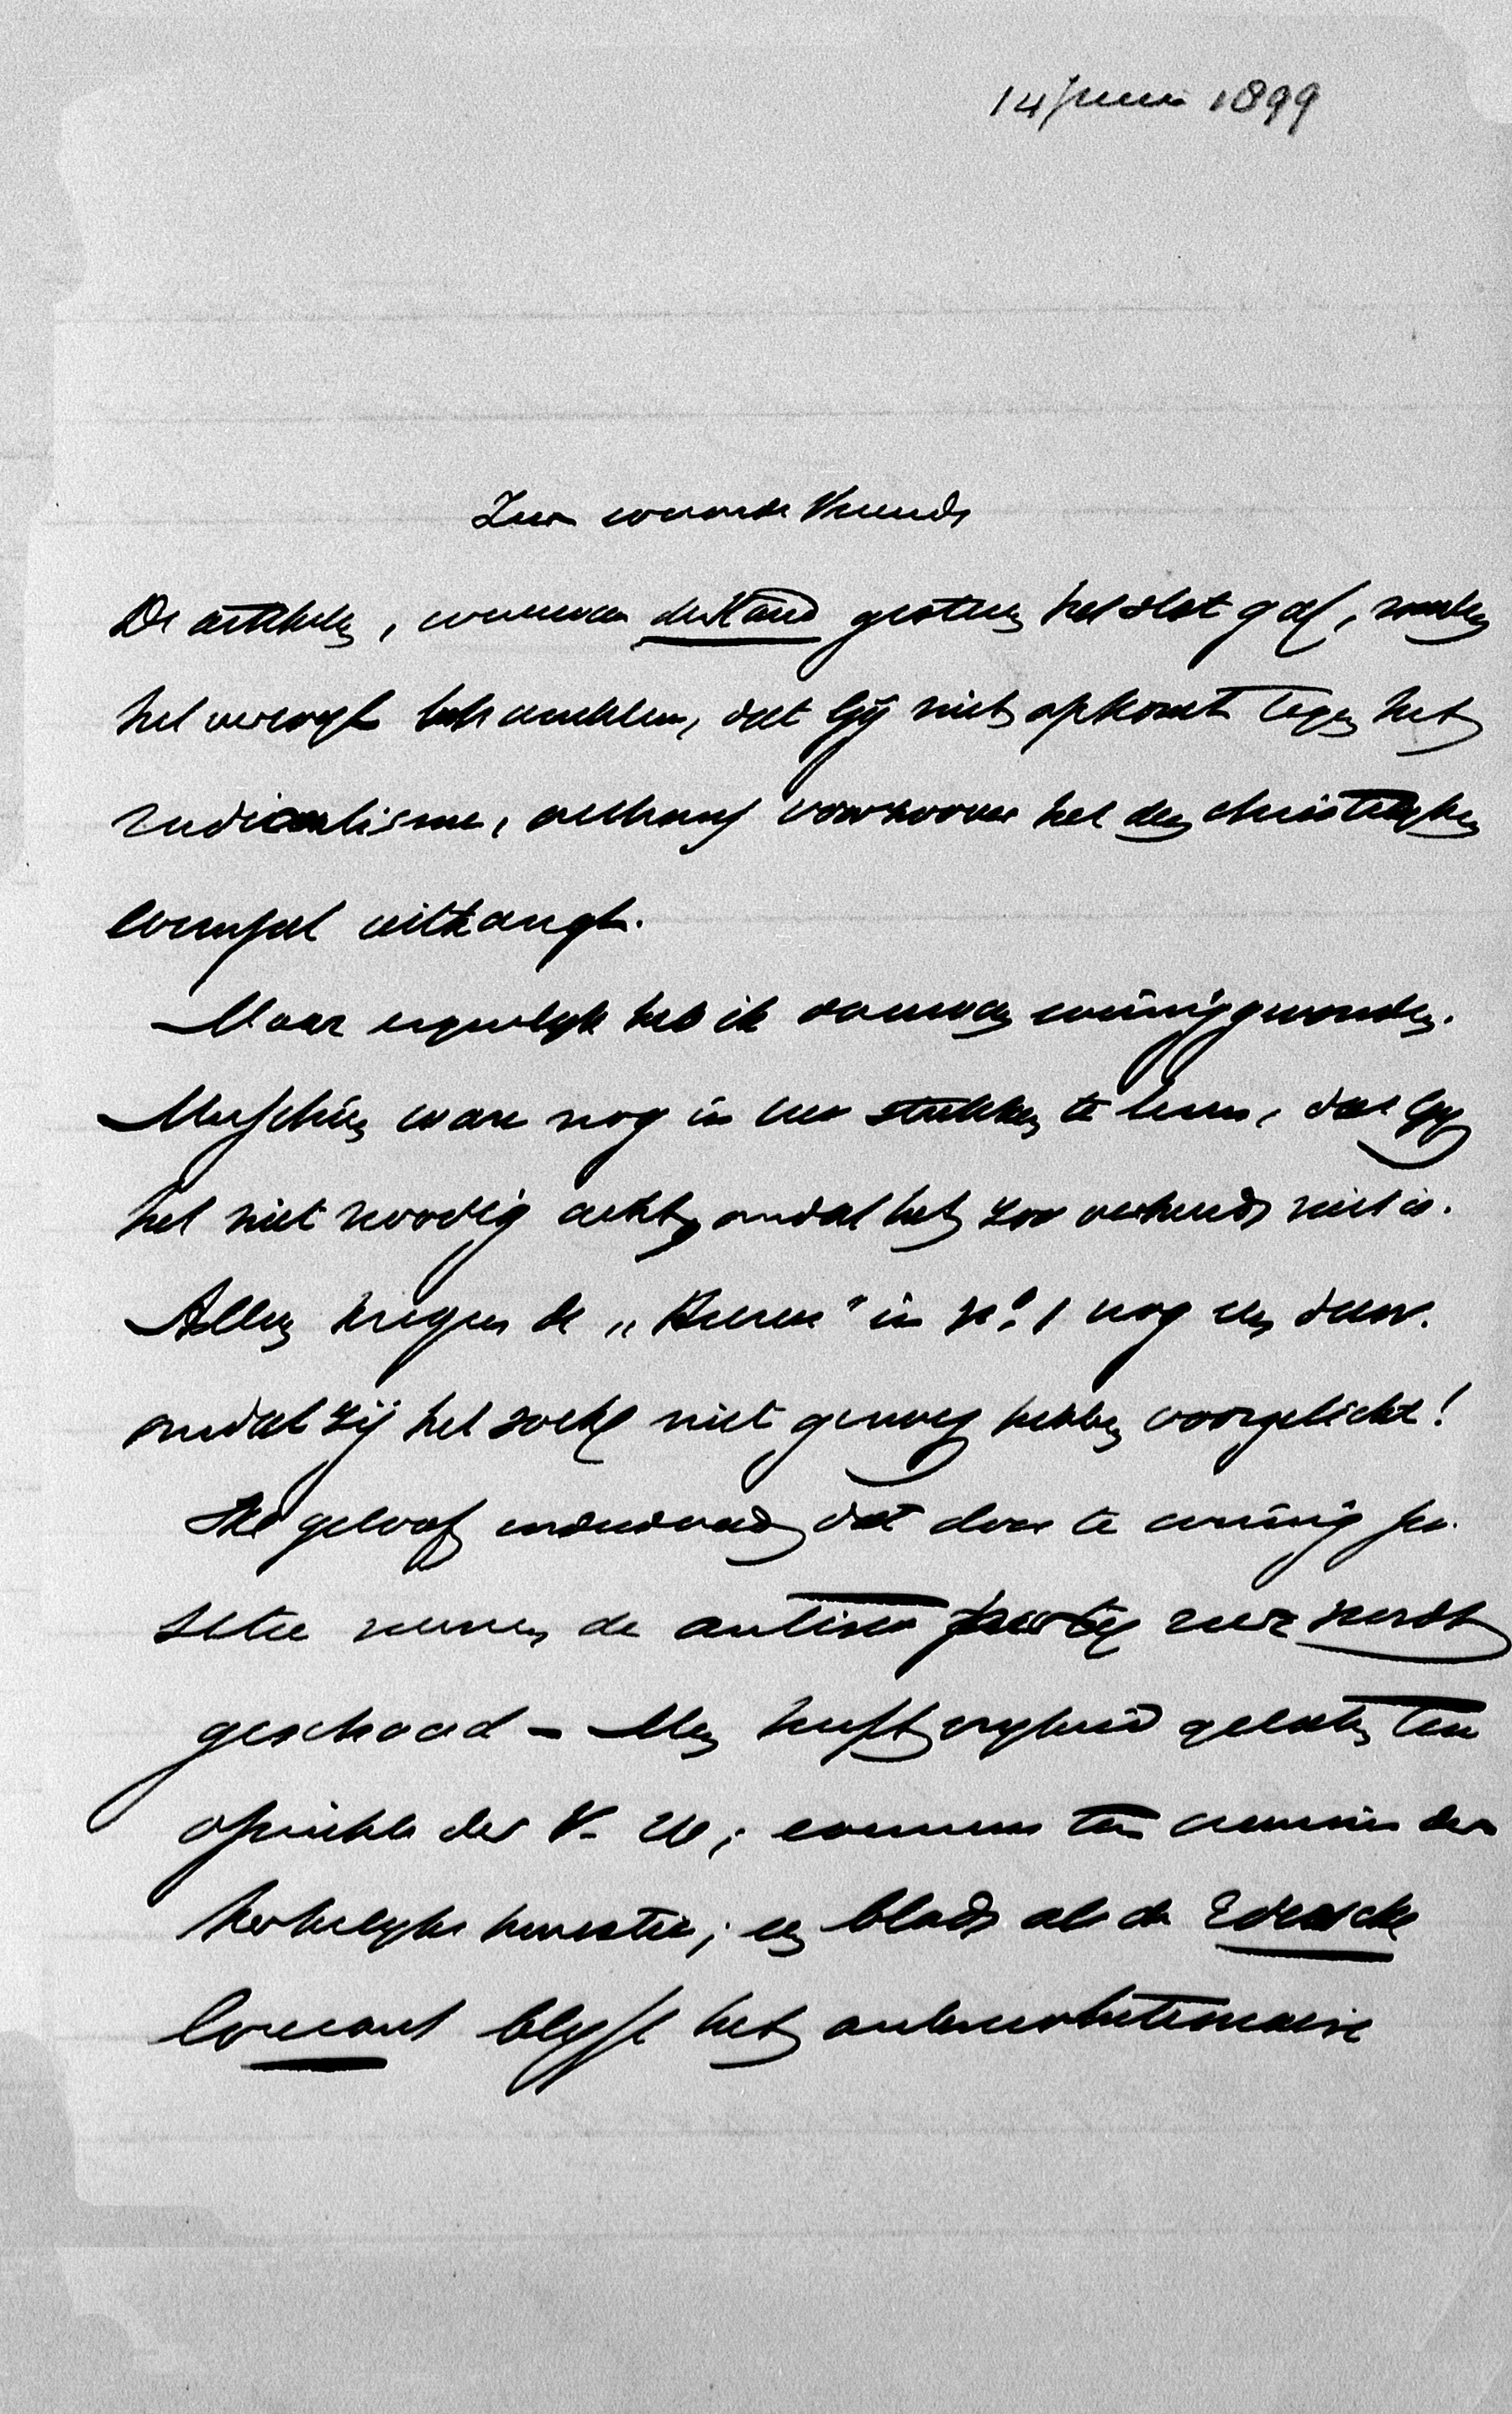 14 Juni 1899
Zeer waarde Vriend
De artikelen, waarvan de Stand gisteren het slot gaf, zouden
het verwijt behandelen, dat Gij niet opkomt tegen het
radicalisme, althans voorzoover het den christelijken
wimpel uithangt.
Maar eigenlijk heb ik daarvan weinig gevonden.
Misschien ware nog in uw stukken te lezen, dat Gij
het niet noodig acht, omdat het zoo verkeerd niet is.
Alleen kregen de „Heeren" in No. 1 nog een
omdat zij het volk niet genoeg hebben voorgelicht!
Ik geloof inderdaad dat door te weinig po-
sitie nemen de antirev partij zeer wordt
geschaad – Men heeft vrijheid gelaten ten
opzichte der V. U; evenzeer ten aanzien der
kerkelijke kwestie; een blad als de Edesche
Courant blijft het antirevolutionaire